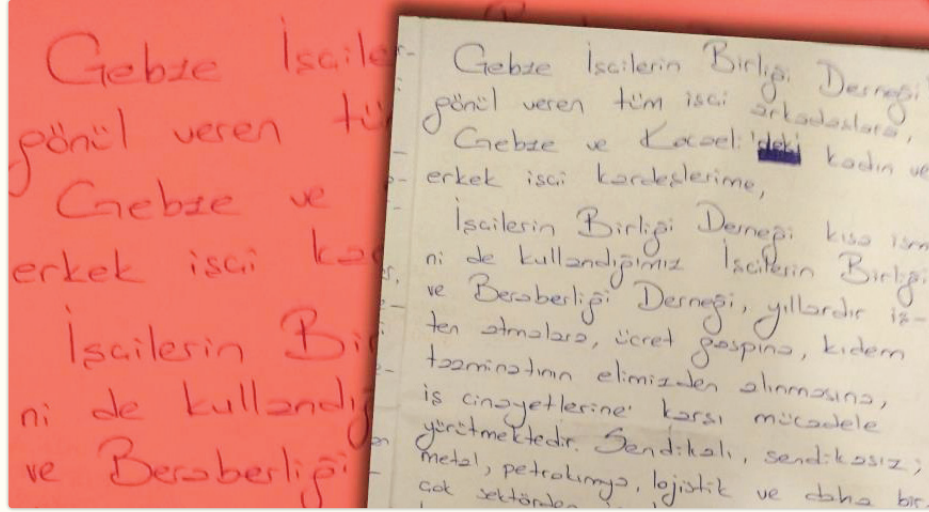 Gebze İşçile
gönül veren tü
Gebze ve
erkek işçi ka
İşçilerin Bir
ni de kullandığ
ve Beraberliği
Gebze İşçilerin Birliği Derneği
gönül veren tüm işçi arkadaslara,
Gebze ve Kocaeli'deki kadın ve
erkek işçi kardeşlerime,
İşçilerin Birliği Derneği kısa ism
ni de kullandığımız İşçilerin Birliği
ve Beraberliği Derneği, yıllardır iş-
ten atmalara, ücret gaspına, kıdem
tazminatının elimizden alınmasına,
iş cinayetlerine karşı mücadele
yürütmektedir. Sendikalı, sendikasız;
metal, petrokimya, lojistik ve daha bir
çok sektörden